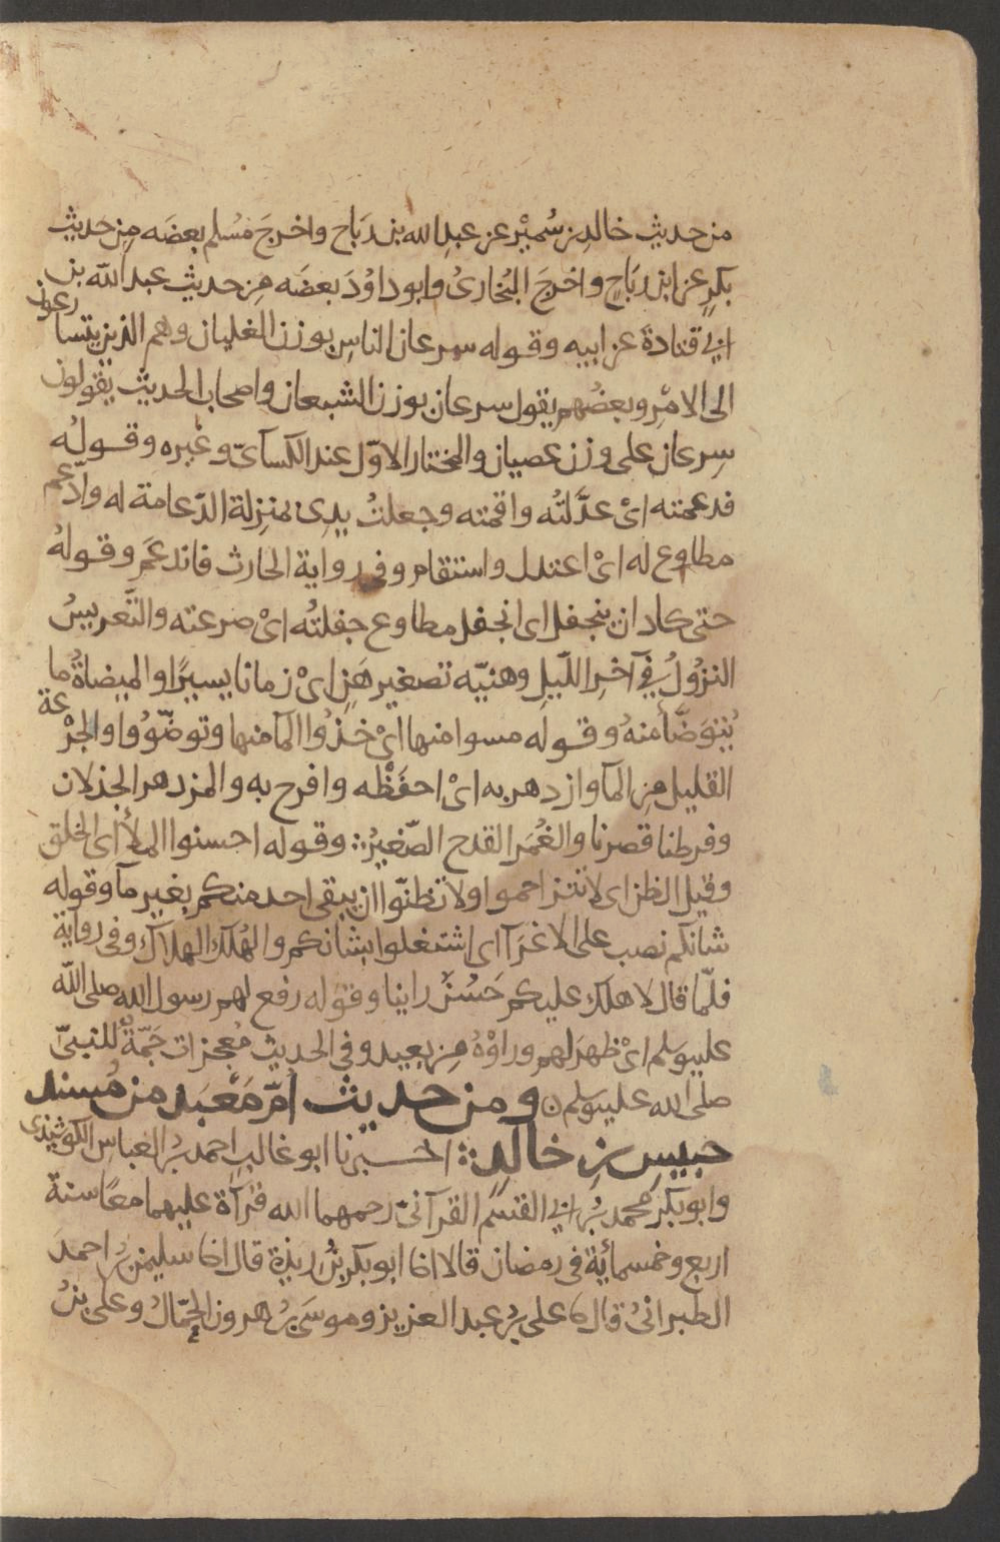 من حديث خالد بن سُميْر عن عبدِ الله بن رَباح واخرجَ مُسلم بعضَه مِن حَديث
بكرٍ عن ابن رَباحٍ واخرجَ البُخارىُ وابو داوُدَ بعضَه مِن حديث عبد الله بن
ابي قتادة عن ابيه وقوله سرعان الناسِ بوزن الغليان وهم الذين يتسارعون
الى الامْرِ وبعضُهم يقول سرعان بوزن الشبعان واصحاب الحديث يقولون
سِرعان على وزن عصيان والمختار الاوّل عند الكسآىّ وغيره وقولُه
فدعمته اىْ عدَّلتُه واقمته وجعلتُ يدِى بمنزِلة الدّعامة له وادّعم
مطاوع له اىْ اعتدل واستقام وفى رواية الحارث فاندعَم وقولهُ
حتى كاد ان ينجفل اى انجفل مطاوع جفلتُه اىْ صرعته والتَّعريسُ
النزُولُ فِي آخرِ اللّيلِ وهنيّه تصغير هَنٍ اىْ زمانا يسيرًا والميضاةُ ما
يُتوَضَّأ منهُ وقوله مسوا منها اىْ خذُوا المآ منها وتوضّؤُوا والجُرْعة
القليل مِن المآ وازدهر به اىْ احفَظْه وافرح به والمزدهر الجذلان
وفرطنا قصرنا والغُمَر القدح الصّغيرُ ؞ وقوله احسنوا الملأ اى الخلق
وقيل الظن اى لا تتزاحموا ولا تظنّوا ان يبقى احد منكم بغير مآ وقوله
شانكم نصب على الاغرَآ اى اشتغلوا بشانكم والهُلك الهلاك وفى رواية
فلمّا قال لا هلك عليكم حَسُنَ راينا وقوله رفع لهم رسول الله صلى الله
عليه وسلم اىْ ظهرَ لهم وراوْهُ مِن بعيد وفى الحديث مُعجزات جَمّةٌ للنبىّ
صلى الله عليه وسلم ٥ ومن حديث امّ مَعْبَد من مُسند
حبيسِ بنِ خالدٍ ؞ اخبرنا ابو غالب احمد بنُ العباس الكوشيذى
وابو بكر محمد بنُ ابي القسم القرآنىّ رحمهما الله قرآة عليهما معًا سنة
اربع وخمسمأية فى رمضان قالا انا ابو بكر بنُ ريذة قال انا سليمن بنُ احمدَ
الطبرانىُ قال نا على بنُ عبد العزيز وموسَى بنُ هرون الحمّالُ وعلى بنُ